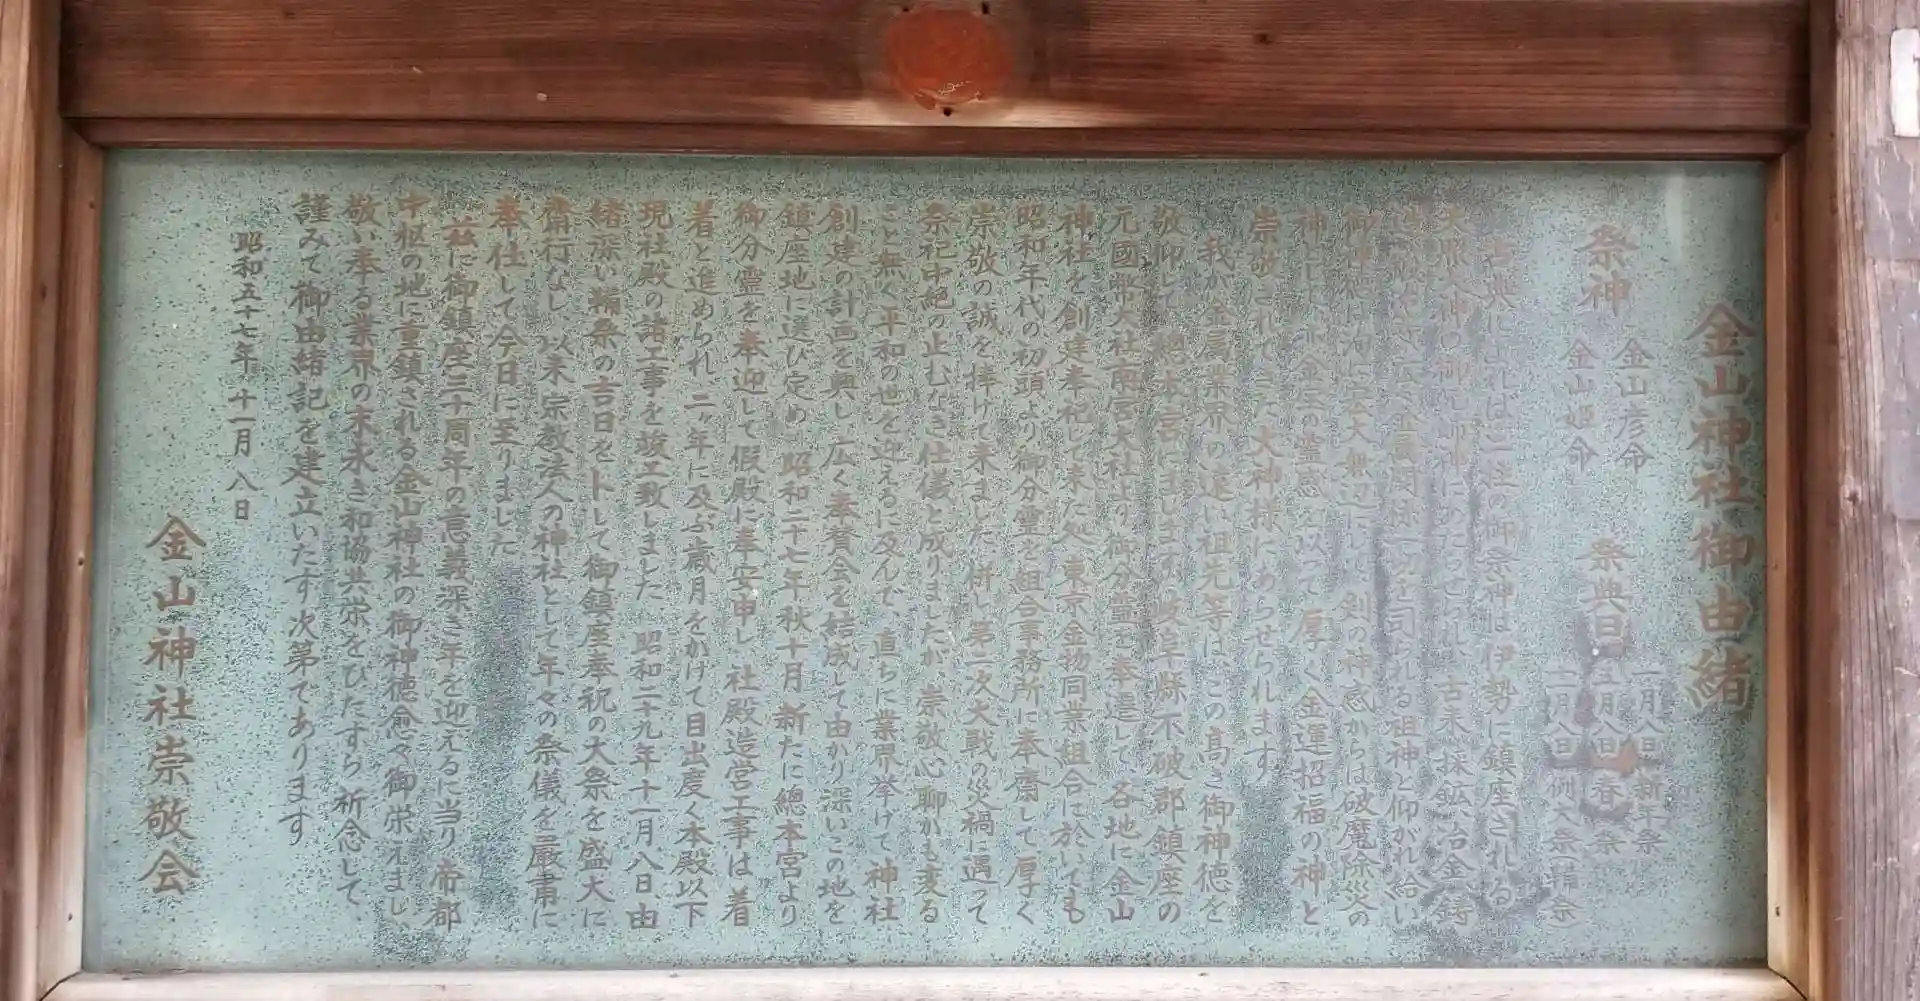 金山神社御由緒
祭神 金山彦命
金山姫命
祭典日 一月八日 新年祭
五月八日 春祭
十一月八日 例大祭(鞴祭)
古典によれば二柱の御祭神は伊勢に鎮座される
天照大神の御兄姉神にあたらせられ、古来、採鉱、冶金、鋳
金属関係一切を司られる祖神と仰がれ給い
御神徳は 宏大無辺にして、剣の神感からは破魔除災の
神として、亦、金 の霊感を以って、厚く金運招福の神と
崇敬されてきた大神様にあらせられます
我が金属業界の遠い祖先等は、この高き御神徳を
敬仰して、總本宮にまします、岐阜縣不破郡鎮座の
元國幣大社南宮大社より御分霊を奉遷して、各地に金山
神社を創建奉祀して来た処、東京金物同業組合に於いても
昭和年代の初頭より御分霊を組合事務所に奉齋して厚く
崇敬の誠を捧げて来ました、併し第二次大戦の災禍に遇って
祭祀中絶の止むなき仕儀と成りましたが、崇敬心聊かも変る
こと無く、平和の世を迎えるに及んで、直ちに業界挙げて神社
創建の計画を興し、広く奉賛会を結成して由かり深いこの地を
鎮座地に選び定め、昭和二十七年秋十月、新たに總本宮より
御分霊を奉迎して假殿に奉安申し、社殿造営工事は着
着と進められ、二ヶ年に及ぶ歳月をかけて目出度く本殿以下
現社殿の諸工事を竣工致しました 昭和二十九年十一月八日、由
緒深い鞴祭の吉日を卜して御鎮座奉祝の大祭を盛大に
齋行なし、以来、宗教法人の神社として年々の祭儀を厳粛に
奉仕して今日に至りました
茲に御鎮座三十周年の意義深き年を迎えるに当り、帝都
中枢の地に重鎮される金山神社の御神徳愈々御栄えまし、
敬い奉る業界の末永き和協共栄をひたすら祈念して、
謹みて御由緒記を建立いたす次第であります
昭和五十七年十一月八日
金山神社崇敬会